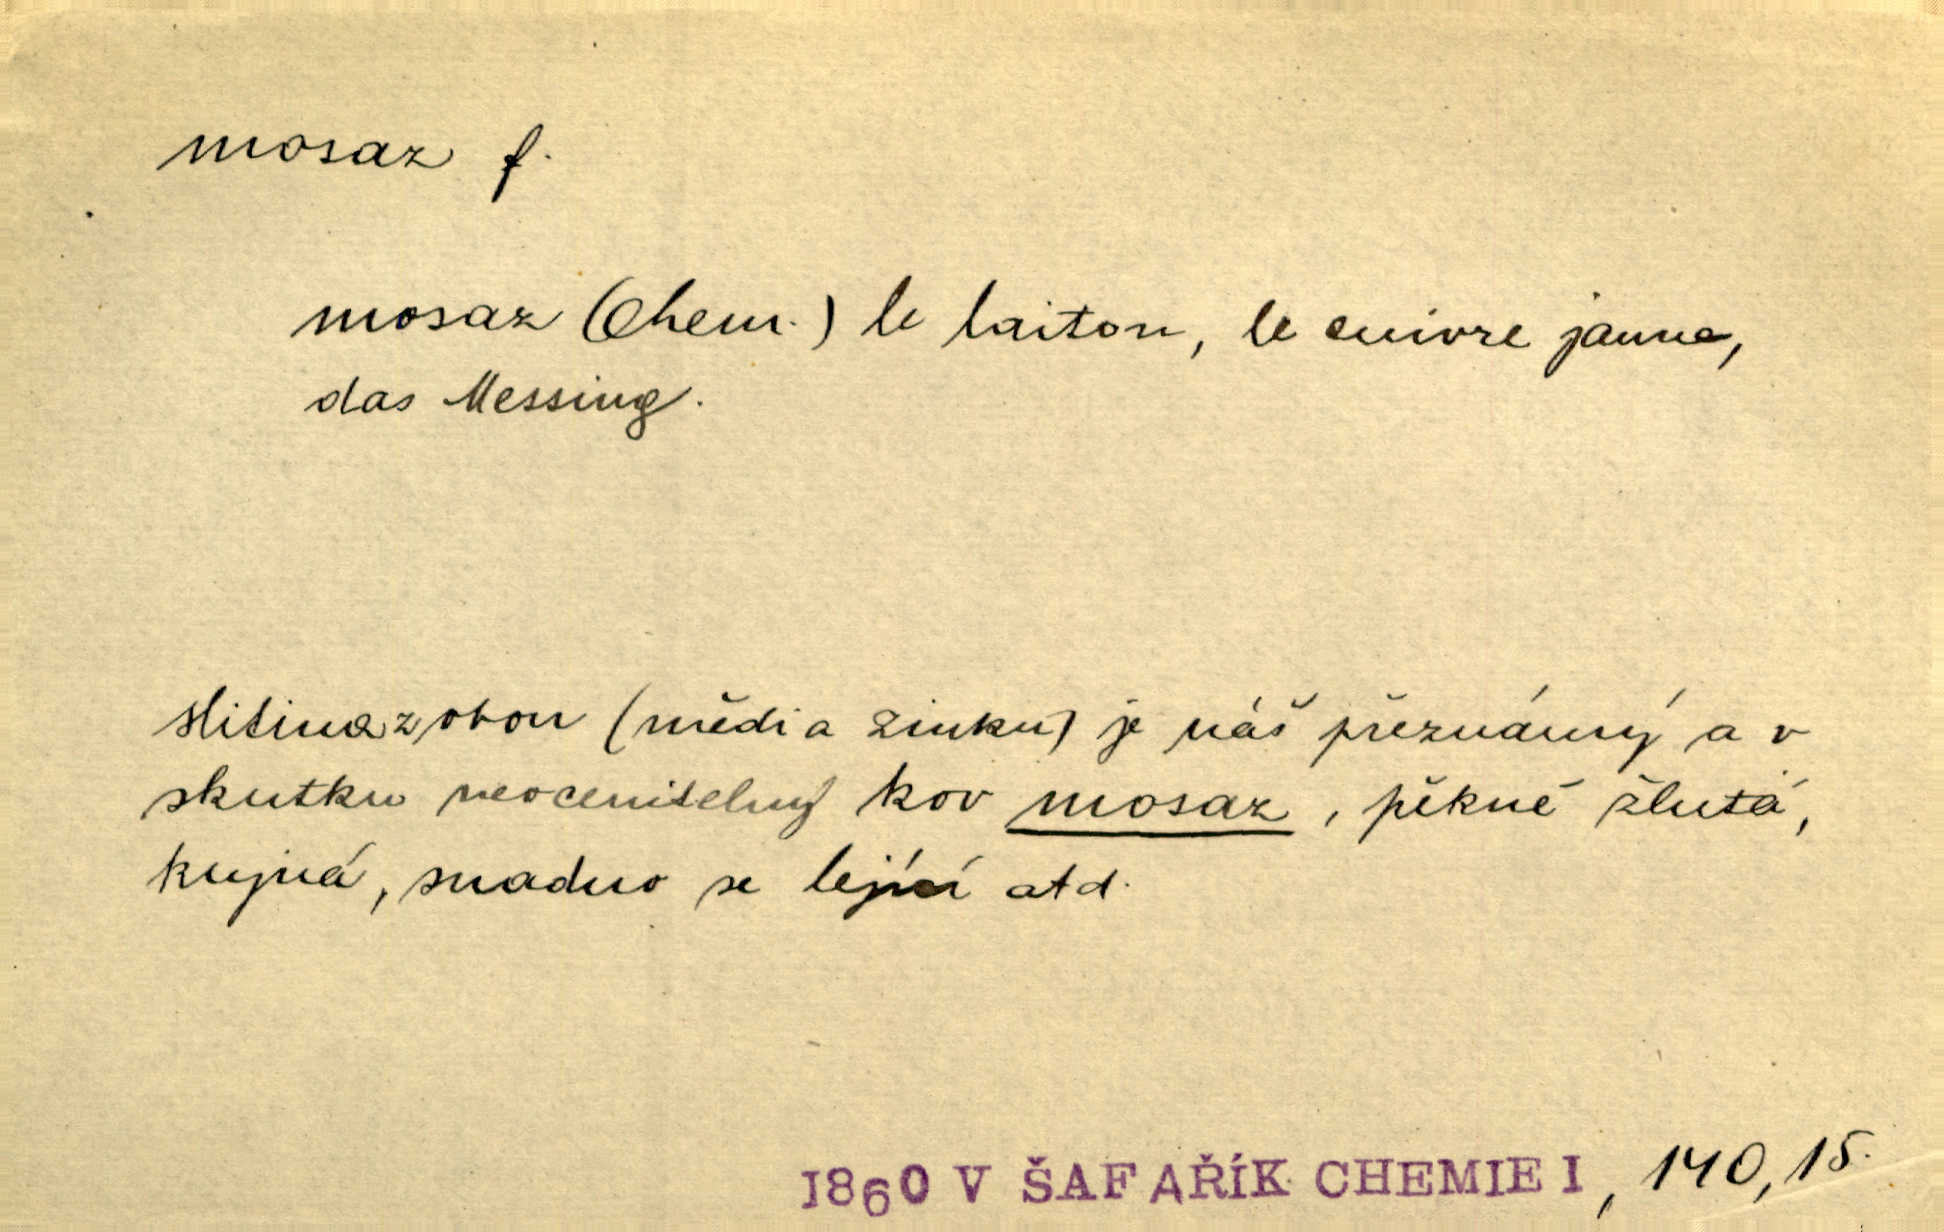 mosaz f.
mosaz (Chem.) le laiton, le cuivre jaune,
das Messing.
slitina z obou (mědi a zinku) je náš přeznámý a v
skutku neocenitelný kov mosaz, pěkně žlutá,
kujná, snadno se lející atd.
1860 V ŠAFAŘÍK CHEMIE I, 140, 15.